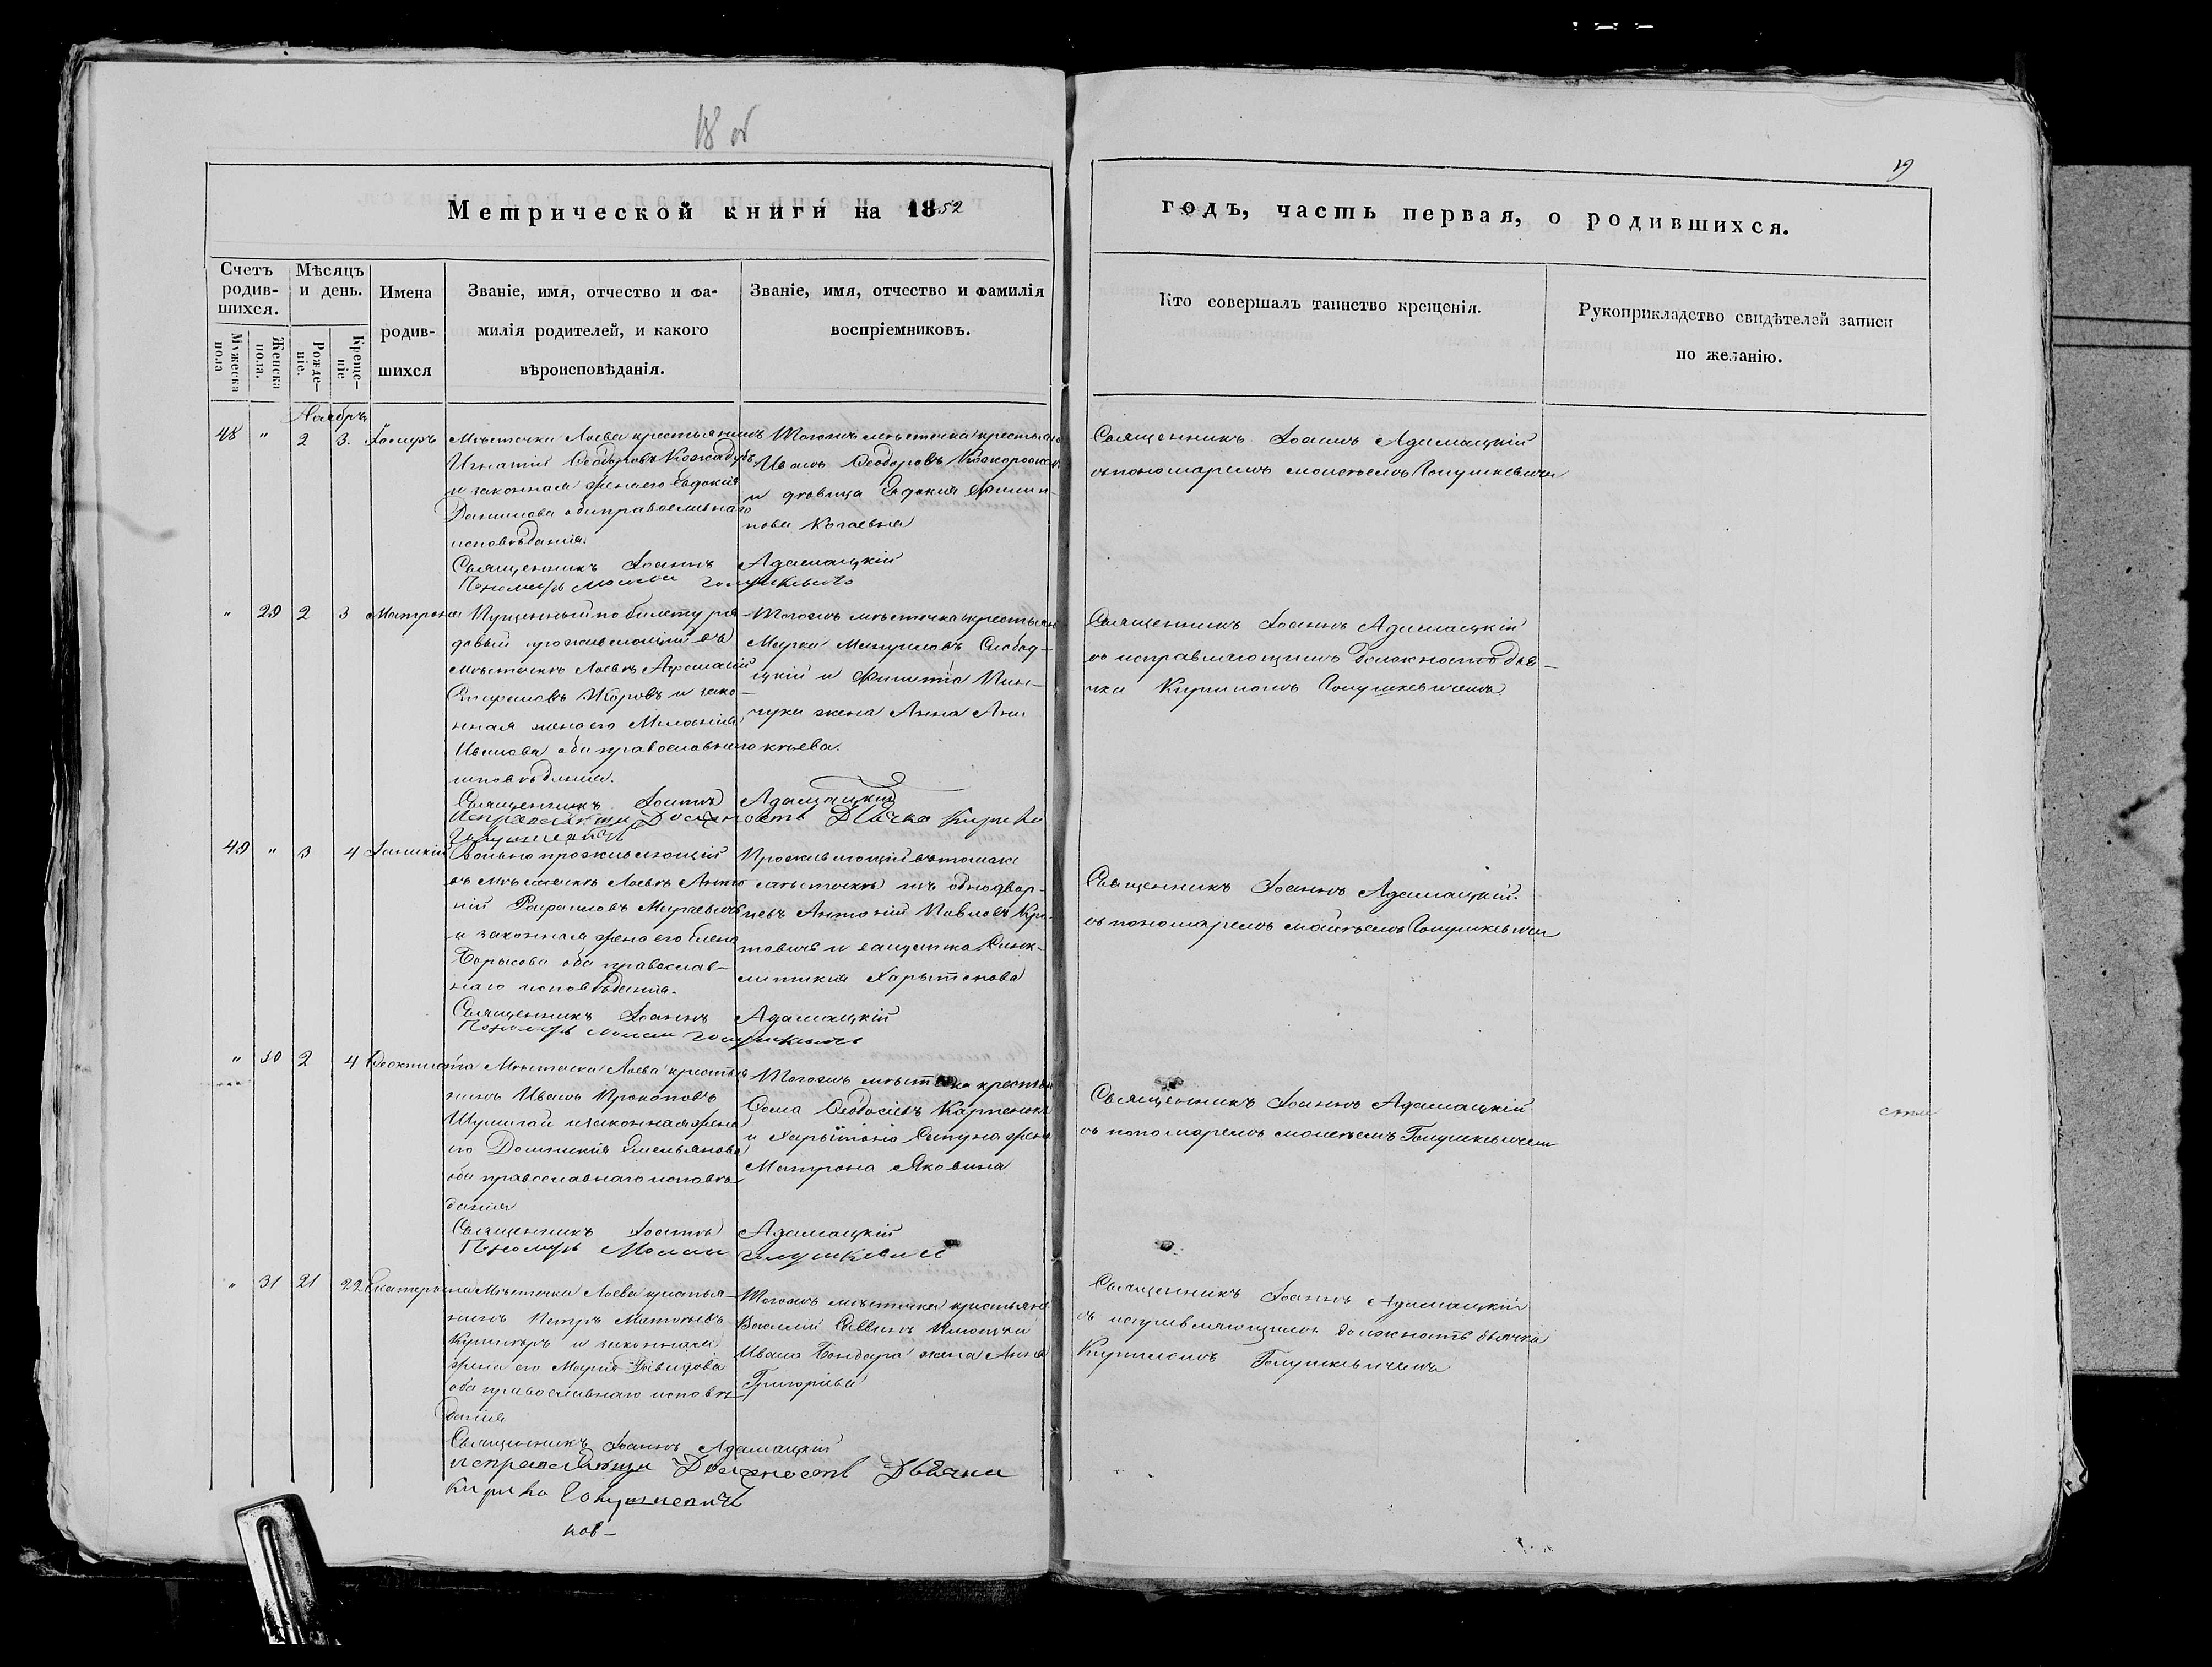 18 об
19
Метрической книги на 1852
годъ, часть первая, о родившихся.
Счетъ родив-
шихся.
Мужеска пола
Женска пола.
Мѣсяцъ и день.
Рожде-
ніе.
Креще-
ніе
Имена
родив-
шихся
Званіе, имя, отчество и фа-
милія родителей, и какого
вѣроисповѣданія.
Званіе, имя, отчество и фамилія
воспріемниковъ.
Кто совершалъ таинство крещенія.
Рукоприкладство свидѣтелей записи
по желанію.
Ноябрь
48 " 2 3.
Мѣстечка Лоева крестьянинъ
Игнатій Ѳеодоровъ
и законная жена его Евдокія
Данилова оба православнаго
исповѣданія.
Священникъ Іоаннъ Адамацкій
Пономарь Моисей Голушкевичъ
Тогожъ мѣстечка крестьянинъ
Иванъ Ѳеодоровъ
и дѣвица Евдокія Филип-
пова
Священникъ Іоаннъ Адамацкій
съ пономаремъ Моисѣемъ Голушкевичем
" 29 2 3 Матрона
Пущенный по билету ря-
довый проживающій въ
мѣстечкѣ Лоевѣ
Жоровъ и зако-
нная жена его Меланія
Иванова оба православнаго
исповѣданія.
Священникъ Іоаннъ Адамацкій
Исправляющи Должность Дьячка Кирило
Голушкевичъ
Тогожъ мѣстечка крестьян
Марко Слобод-
цкій и Филиппа
жена Анна
Священникъ Іоаннъ Адамацкій
съ исправляющимъ должность дья-
чка Кириломъ Голушкевичемъ
49 " 3 4
Вольно проживающій
въ мѣстечкѣ Лоевѣ Анто
ній
и законная жена его Елена
Борысова оба православ-
наго исповѣданія.
Священникъ Іоаннъ Адамацкій
Пономарь Моисей Голушкевичъ
Проживающій въ томже
мѣстечкѣ изъ однодвор-
цевъ Антоній Павловъ
и солдатка
Харытонова
Священникъ Іоаннъ Адамацкій.
съ пономаремъ Моисѣемъ Голушкевичем
" 30 2 4 Ѳеоктиста
Мѣстечка Лоева крестья
нинъ Иванъ Прокоповъ
Шумигай и законная жена
его Домникія Емельянова
оба православнаго исповѣ-
данія
Священникъ Іоаннъ Адамацкій
Пономарь Моисей Голушкевичъ
Тогожъ мѣстечка крестьян
Ѳома Ѳеодосіевъ Карпенко
и Харытона Сапуна жена
Матрона Яковина
Священникъ Іоаннъ Адамацкій
съ пономаремъ Моисѣемъ Голушкевичем
" 31 21 22 Екатерына
Мѣстечка Лоева крестья-
нинъ Петръ Матвѣевъ
и законная
жена его Марія Давидова
оба православнаго исповѣ-
данія
Священникъ Іоаннъ Адамацкій
Исправляющи Должность Дьячка
Кирило Голушкевичъ
Тогожъ мѣстечка крестьяне
Василій Саввинъ
Ивана Бондара жена Анна
Григоріева
Священникъ Іоаннъ Адамацкій
съ исправляющимъ должность дьячка
Кириломъ Голушкевичемъ